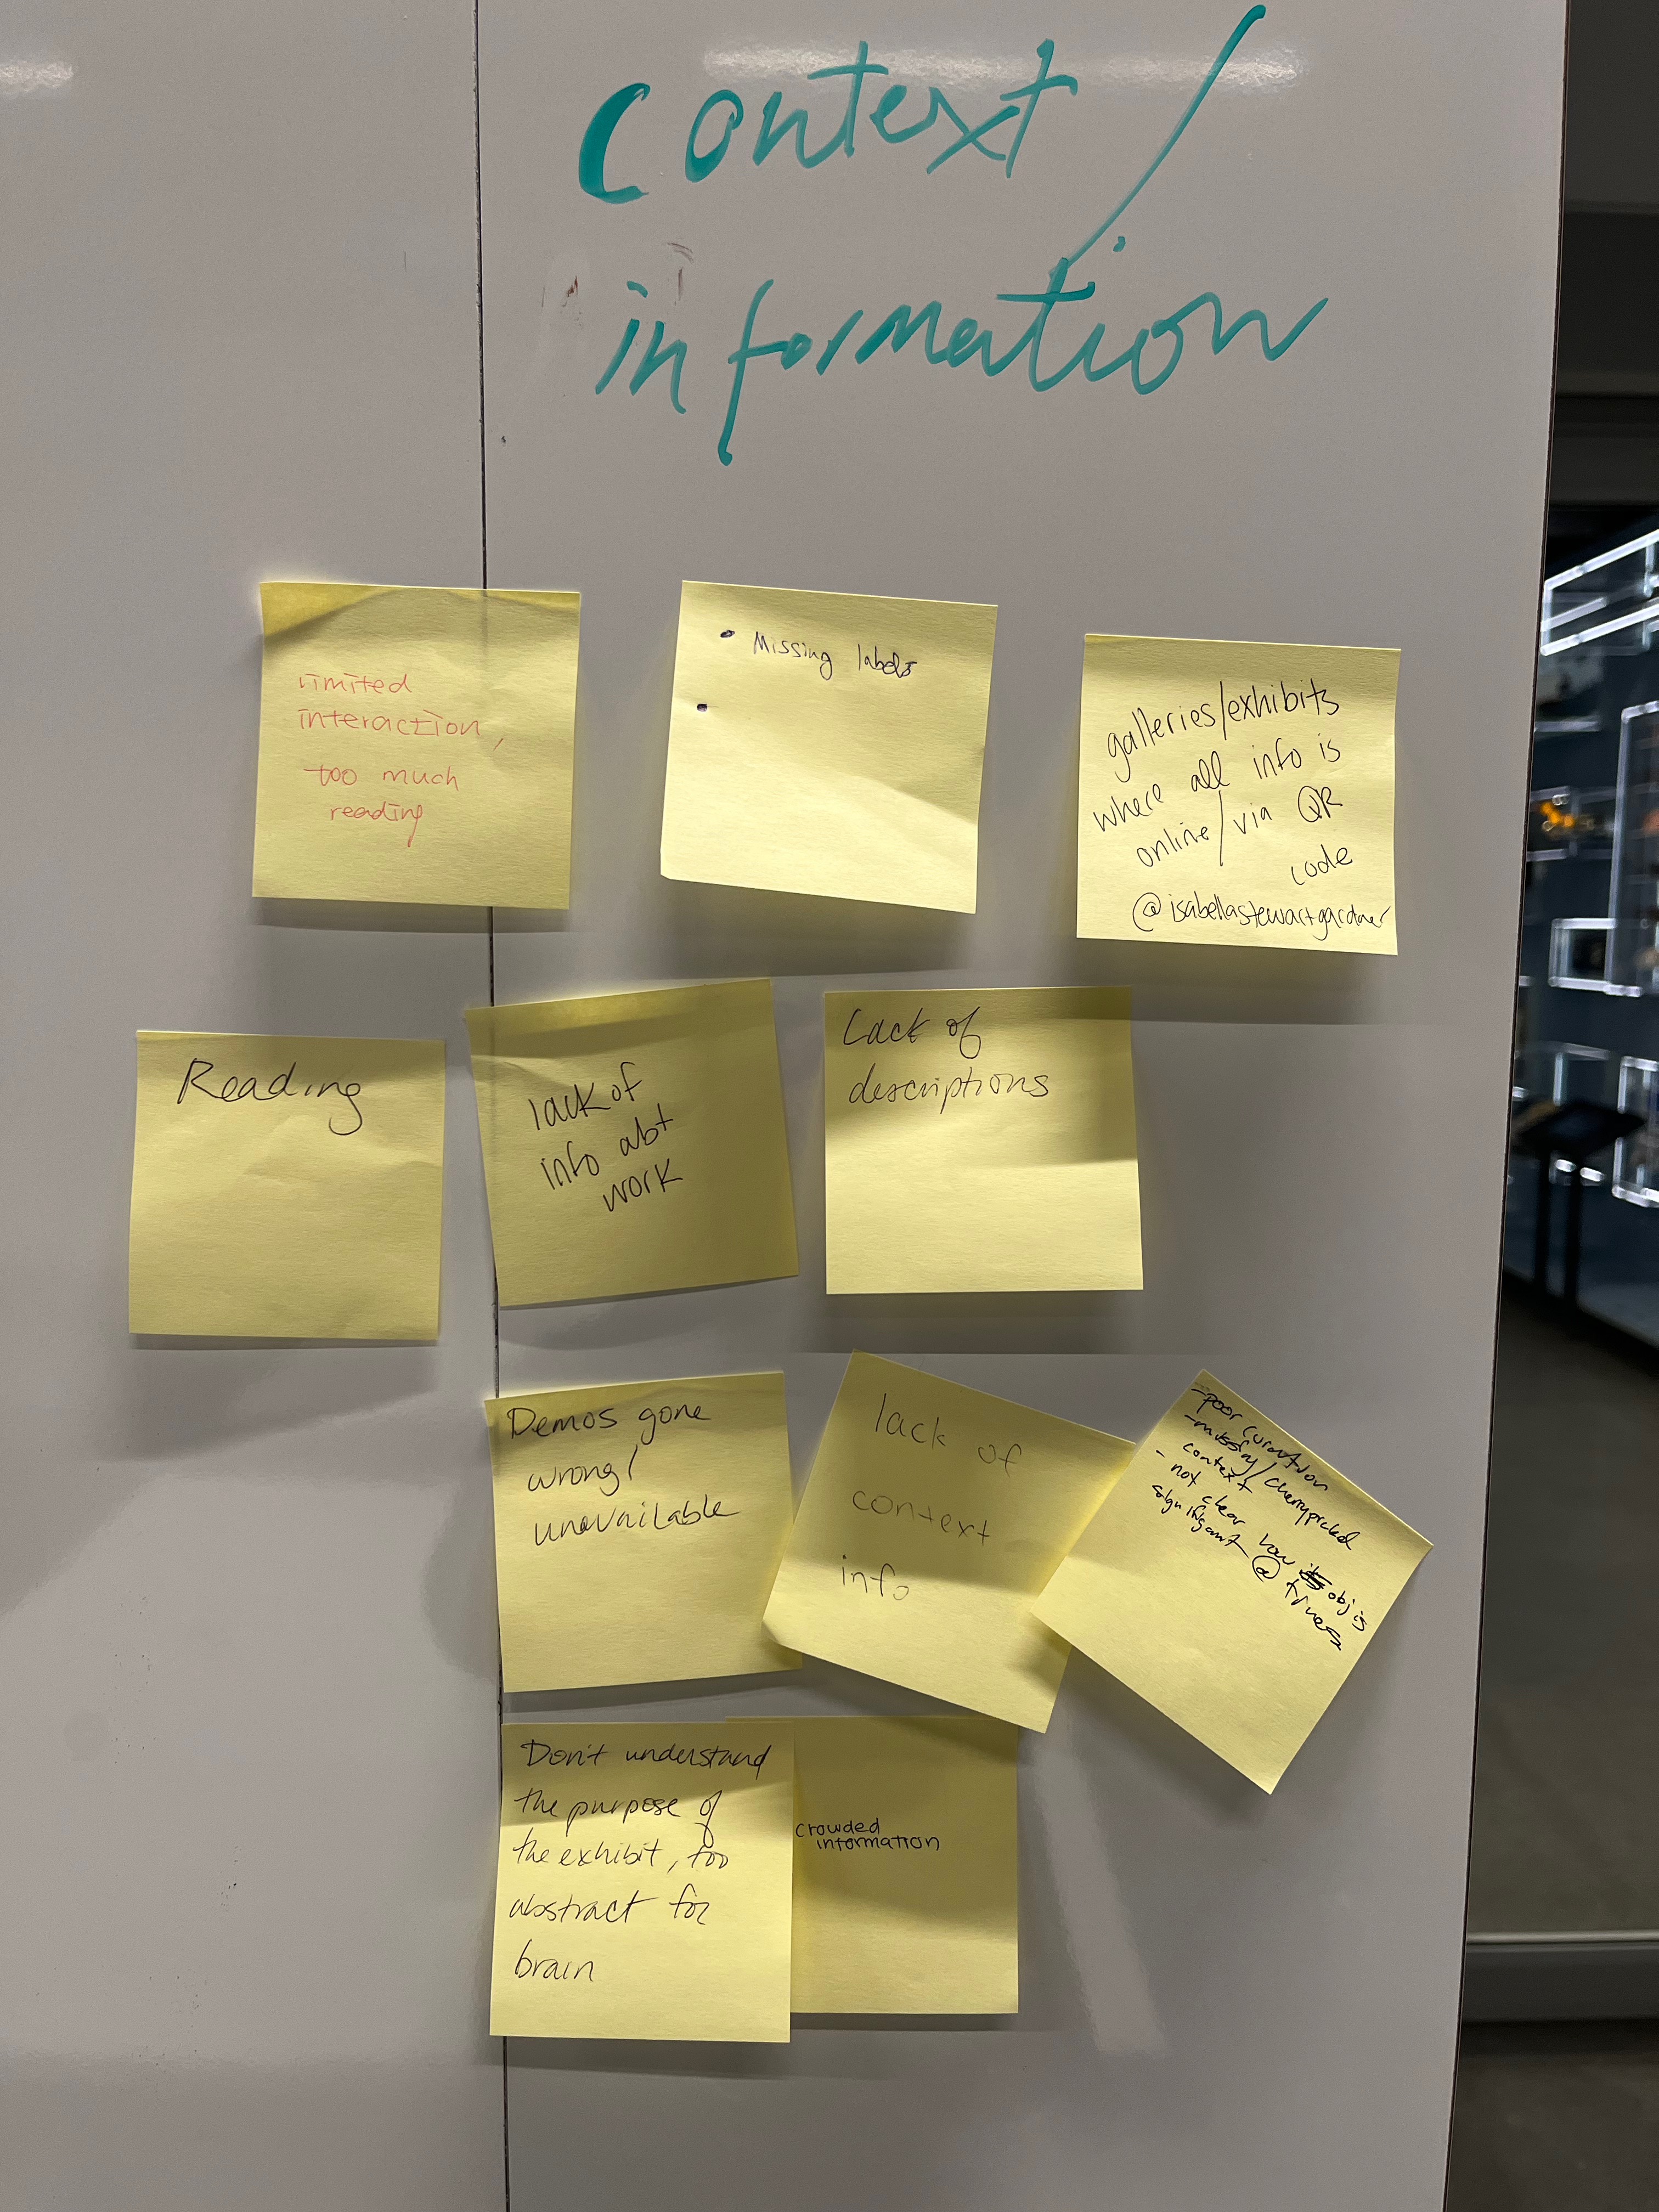 Context/
information
limited
interaction,
too much
reading
• Missing labels
•
galleries/exhibits
where all info is
online/via QR
code
@isabellastewartgardner
Reading
lack of
info abt
work
Lack of
descriptions
Demos gone
wrong/
unavailable
lack of
context
info
-poor curation
-missing/cherrypicked
context
- not clear how obj is
significant @ times
Don't understand
the purpose of
the exhibit, too
abstract for
brain
crowded
information